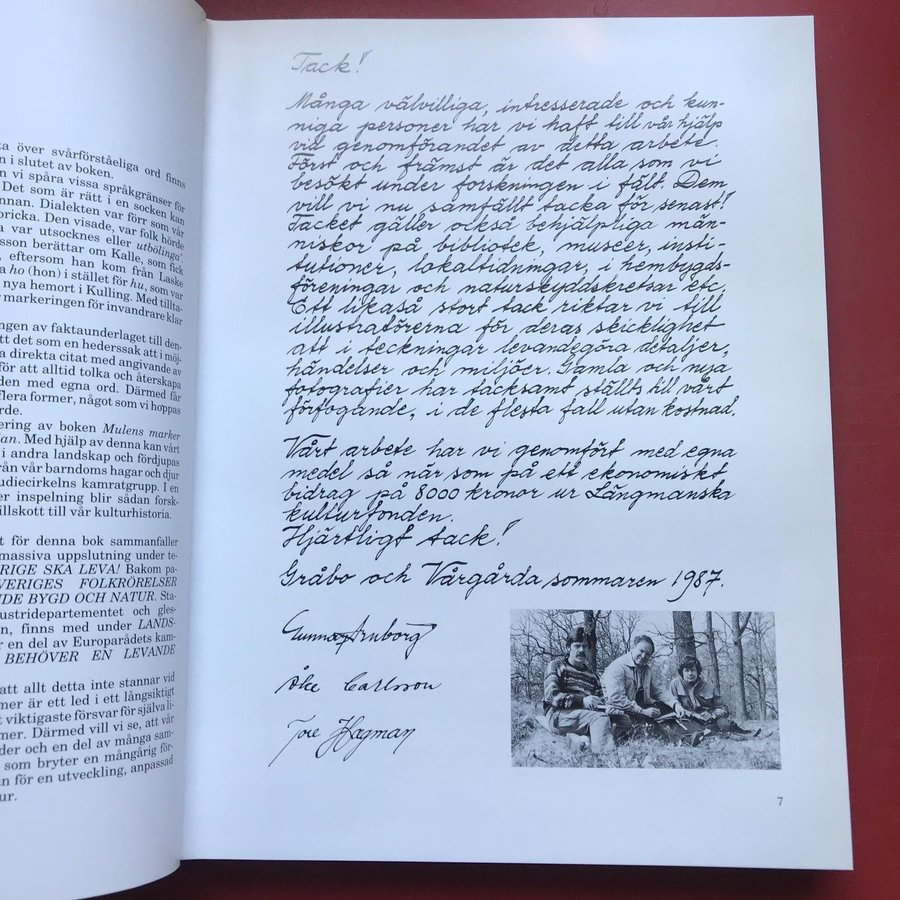 ta över svårförståeliga ord finns
n i slutet av boken.
n vi spåra vissa språkgränser för
Det som är rätt i en socken kan
nnan. Dialekten var förr som vår
bricka. Den visade, var folk hörde
a var utsocknes eller utbölinga'.
sson berättar om Kalle, som fick
, eftersom han kom från Laske
a ho (hon) i stället för hu, som var
nya hemort i Kulling. Med tillta-
markeringen för invandrare klar
ngen av faktaunderlaget till den-
tt det som en hederssak att i möj-
a direkta citat med angivande av
för att alltid tolka och återskapa
den med egna ord. Därmed får
flera former, något som vi hoppas
rde.
ering av boken Mulens marker
an. Med hjälp av denna kan vårt
i andra landskap och fördjupas
rån vår barndoms hagar och djur
udiecirkelns kamratgrupp. I en
er inspelning blir sådan forsk-
illskott till vår kulturhistoria.
t för denna bok sammanfaller
massiva uppslutning under te-
RIGE SKA LEVA! Bakom pa-
VERIGES FOLKRÖRELSER
NDE BYGD OCH NATUR. Sta-
ustridepartementet och gles-
n, finns med under LANDS-
r en del av Europarådets kam-
BEHÖVER EN LEVANDE
att allt detta inte stannar vid
mer är ett led i ett långsiktigt
t viktigaste försvar för själva li-
mer. Därmed vill vi se, att vår
der och en del av många sam-
som bryter en mångårig för-
n för en utveckling, anpassad
ur.
Tack!
Många välvilliga, intresserade och kun-
niga personer har vi haft till vår hjälp
vid genomförandet av detta arbete.
Först och främst är det alla, som vi
besökt under forskningen i fält. Dem
vill vi nu samfällt tacka för senast!
Tacket gäller också behjälpliga män-
niskor på bibliotek, muséer, insti-
tutioner, lokaltidningar, i hembygds-
föreningar och naturskyddskretsar etc.
Ett likaså stort tack riktar vi till
illustratörerna för deras skicklighet
att i teckningar levandegöra detaljer,
händelser och miljöer. Gamla och nya
fotografier har tacksamt ställts till vårt
förfogande, i de flesta fall utan kostnad.
Vårt arbete har vi genomfört med egna
medel så när som på ett ekonomiskt
bidrag på 8000 kronor ur Längmanska
kulturfonden.
Hjärtligt tack!
Gråbo och Vårgårda sommaren 1987.
Gunnar Arnborg
Åke Carlsson
Tore Hagman
7